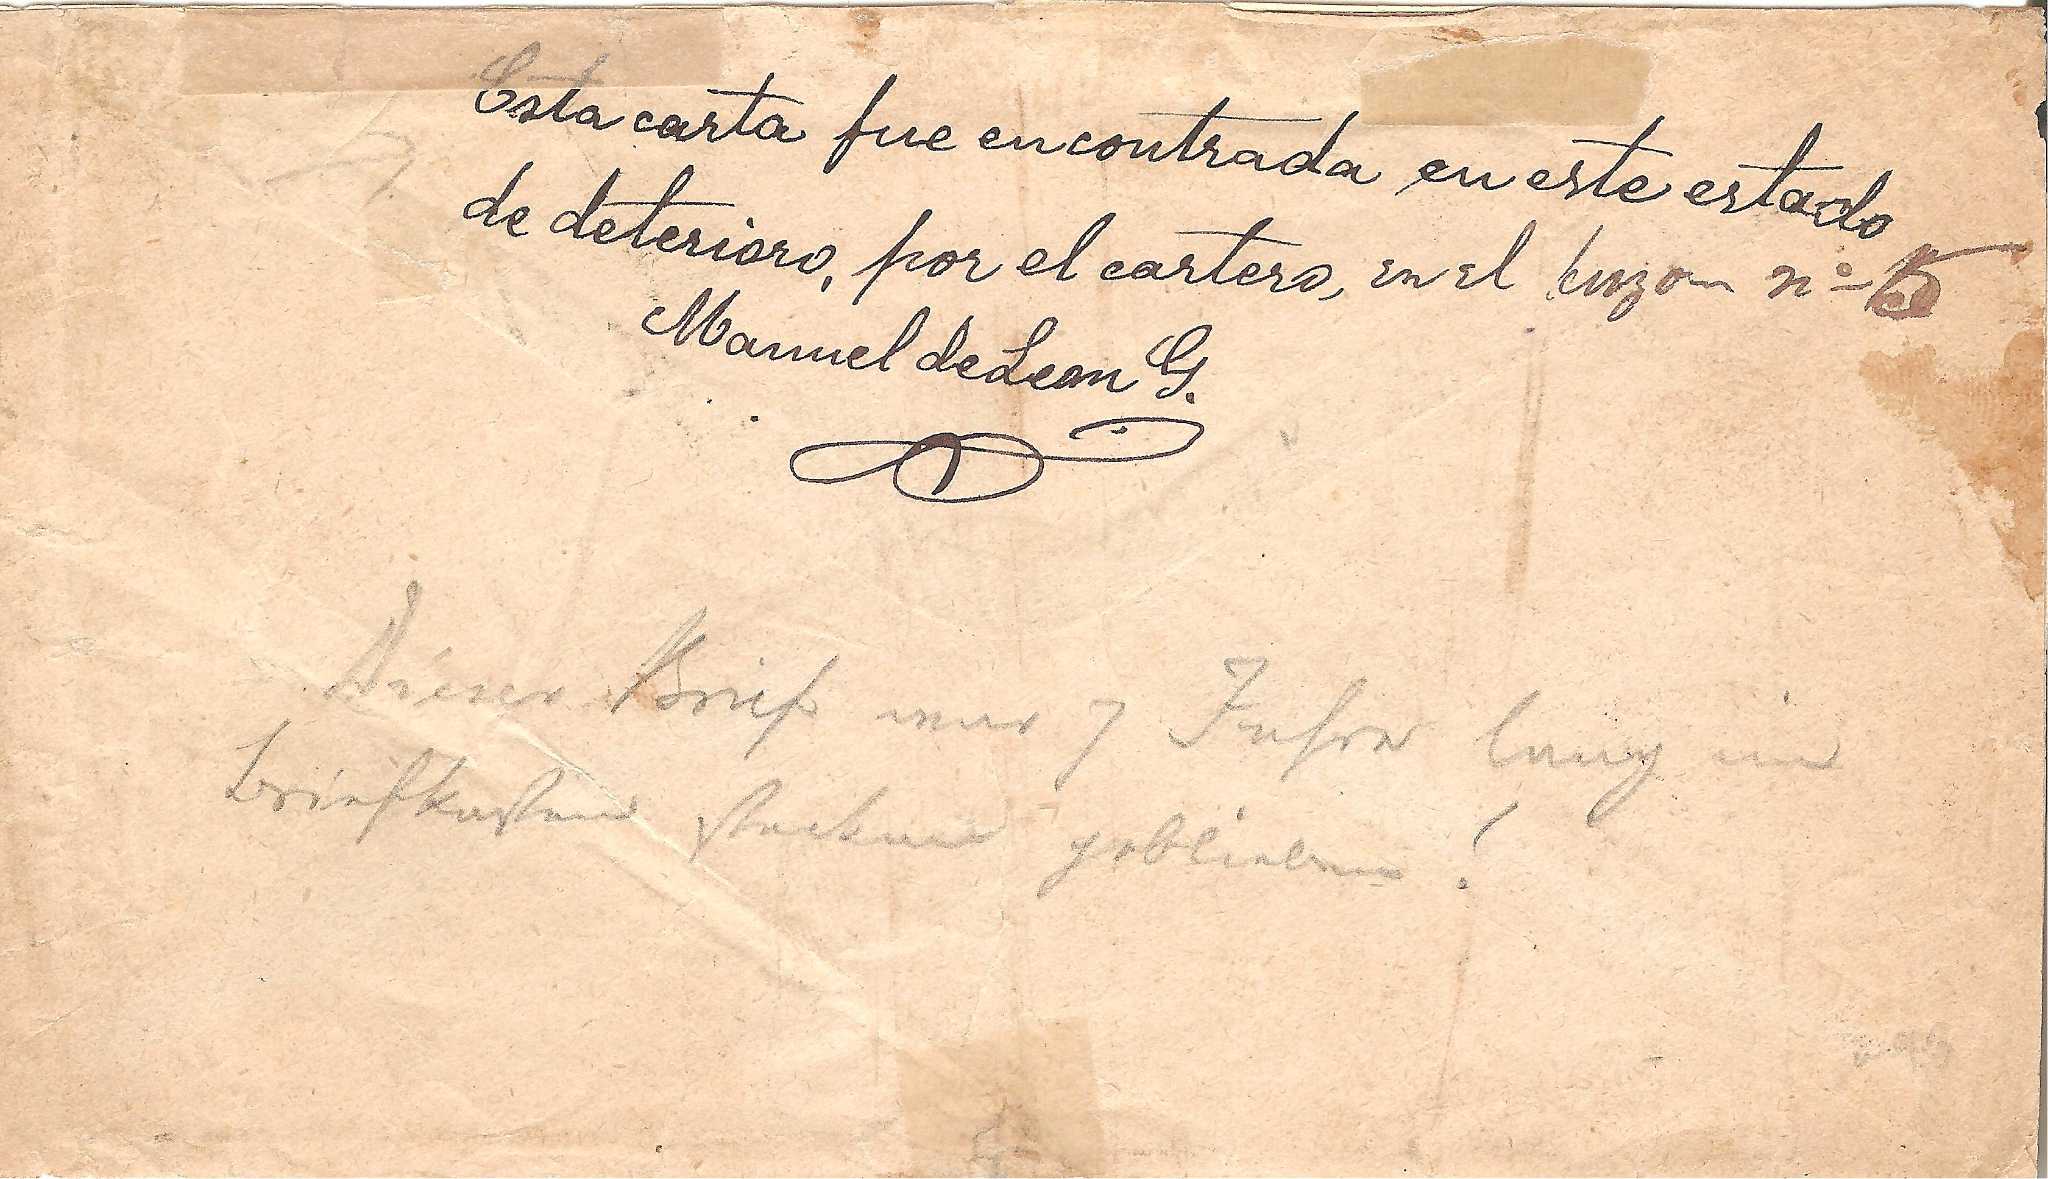 Esta carta fue encontrada en este estado
de deterioro, por el cartero, en el buzon nº 15
Manuel de Leon G.
Dieser Brief war 7 Jahre lang im
Briefkasten stecken geblieben!